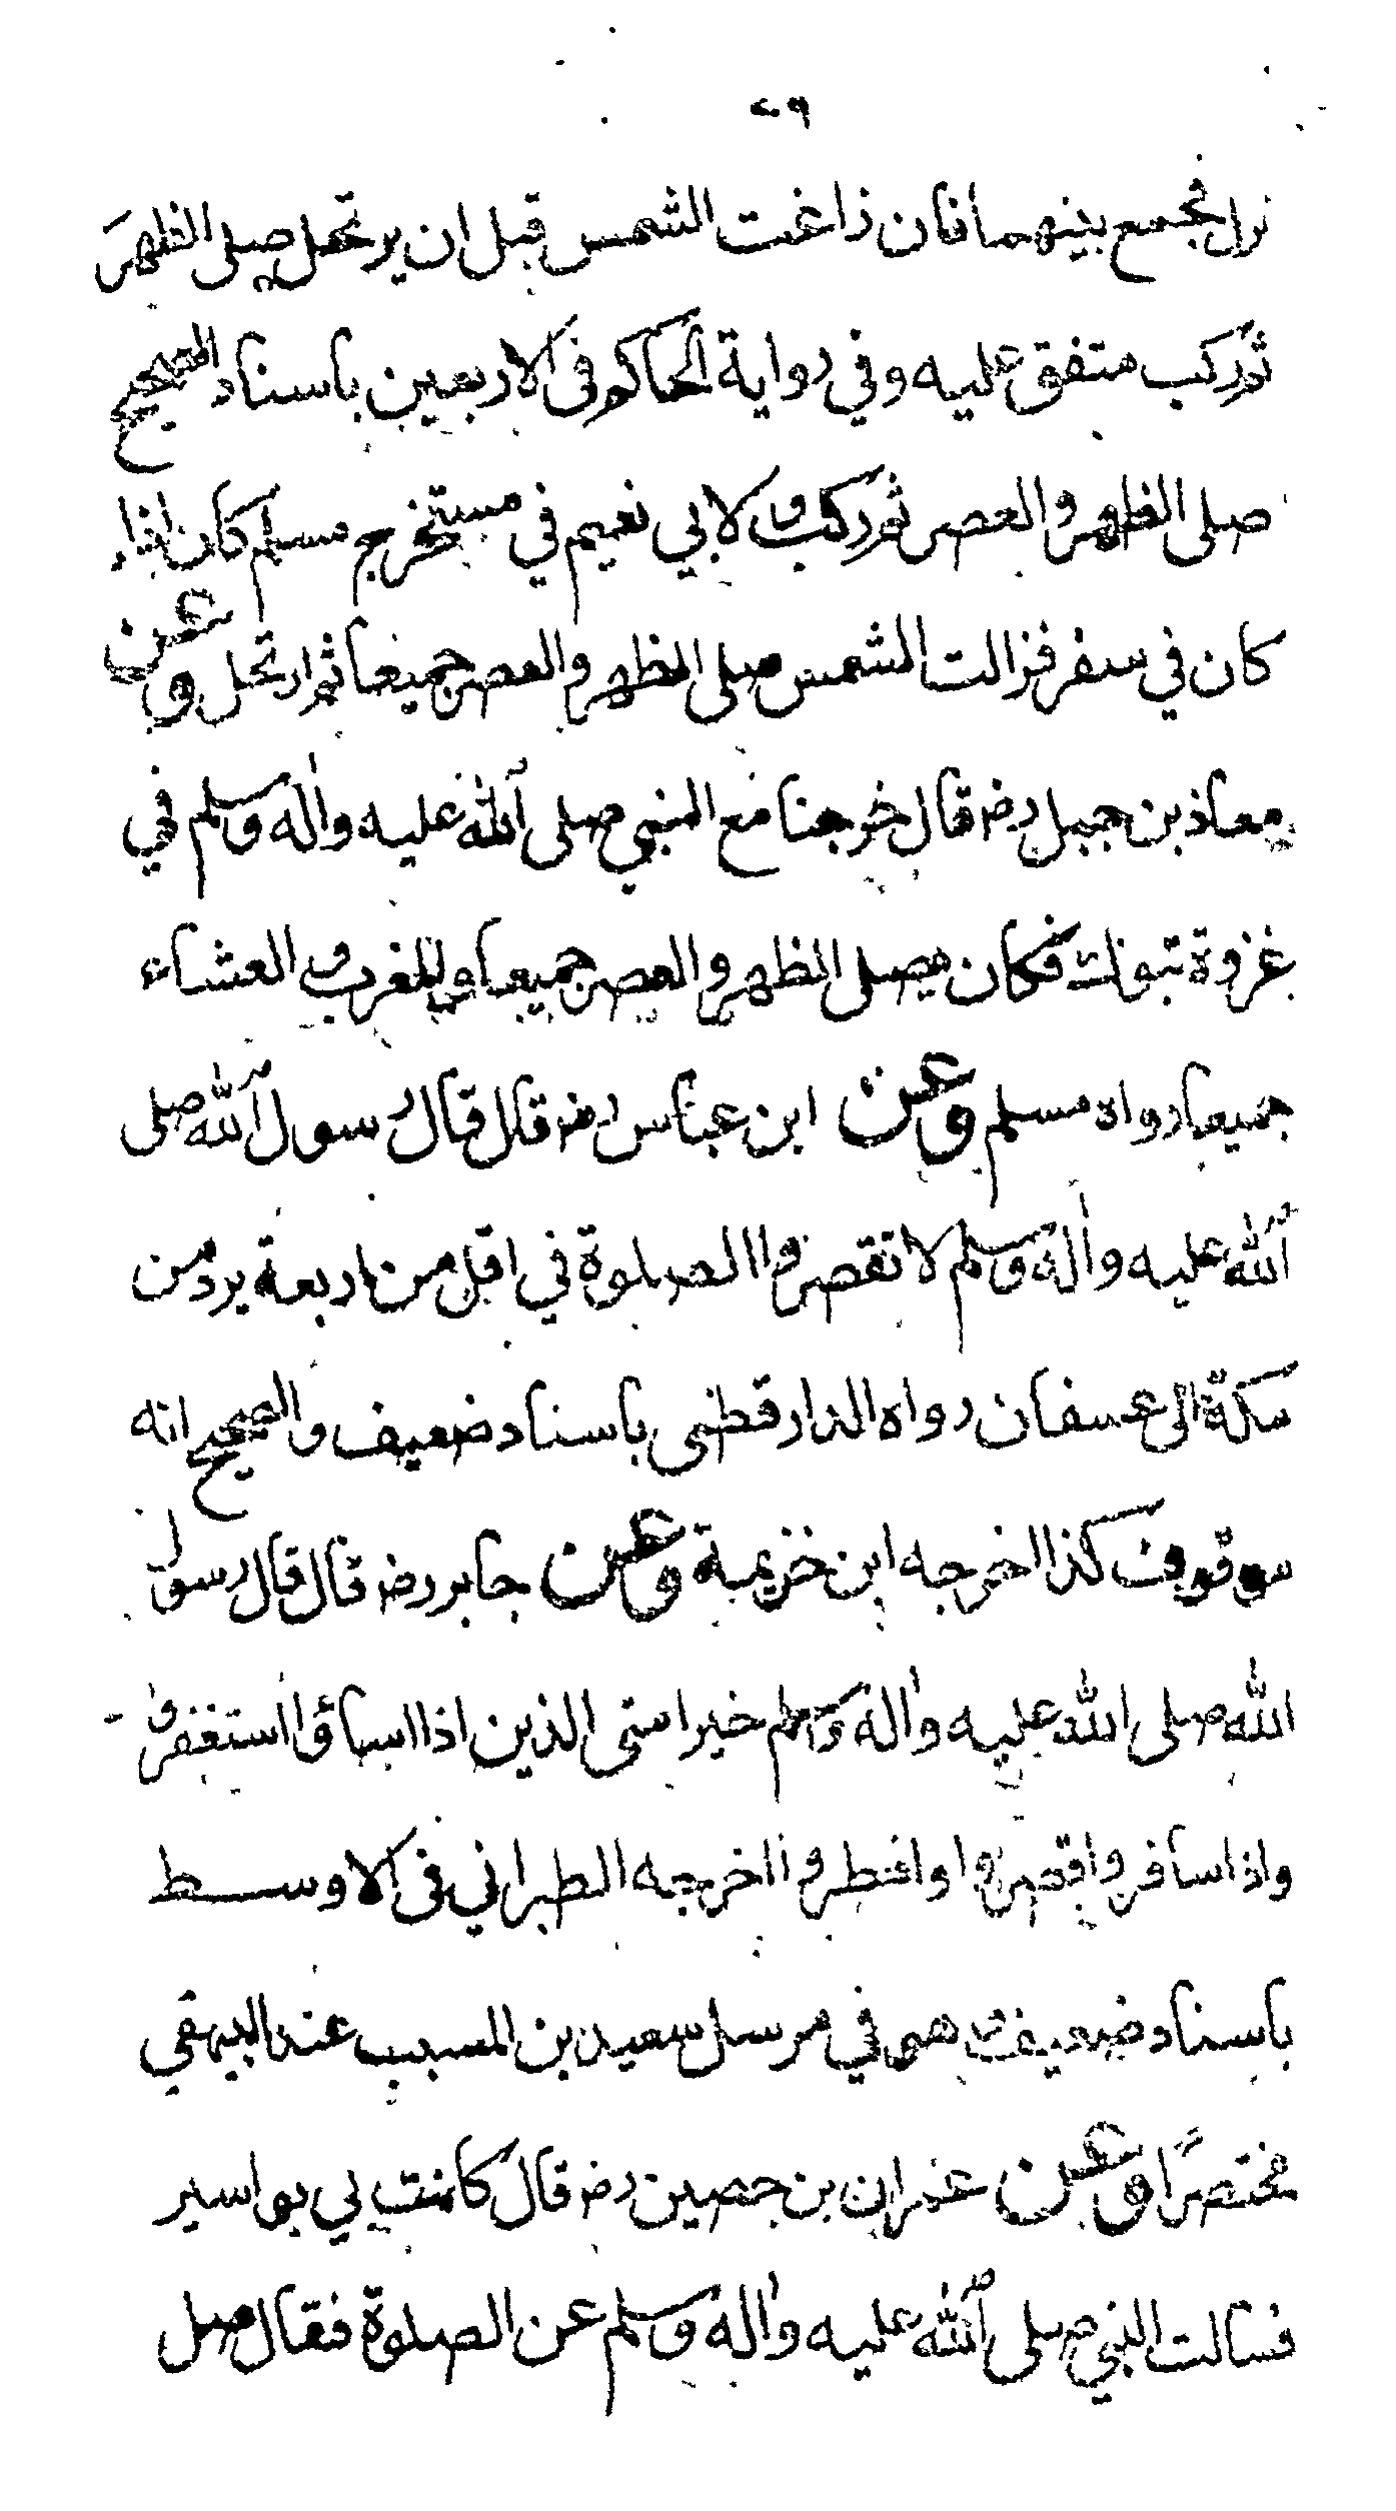 ٤٩
نزل فجمع بينهما فان زاغت الشمس قبل ان يرتحل صلى الظهر
ثم ركب متفق عليه وفي رواية الحاكم فى الاربعين باسناد الصحيح
صلى الظهر والعصر ثم ركب ولابي نعيم في مستخرج مسلم كان اذا
كان في سفر فزالت الشمس صلى الظهر والعصر جميعا ثم ارتحل وعن
معاذ بن جبل رضـ قال خرجنا مع النبي صلى الله عليه واله وسلم في
غزوة تبوك فكان يصلى الظهر والعصر جميعا والمغرب والعشاء
جميعا رواه مسلم وعن ابن عباس رضـ قال قال رسول الله صلى
الله عليه واله وسلم لا تقصروا الصلوة في اقل من اربعة برد من
مكة الى عسفان رواه الدارقطنى باسناد ضعيف والصحيح انه
موقوف كذا اخرجه ابن خزيمة وعن جابر رضـ قال قال رسول
الله صلى الله عليه واله وسلم خير امتى الذين اذا اساؤا استغفروا
واذا سافروا قصروا وافطروا اخرجه الطبراني فى الاوسط
باسناد ضعيف وهو في مرسل سعيد بن المسيب عند البيهقي
مختصرًا وعن عمران بن حصين رضـ قال كانت بي بواسير
فسالت النبي صلى الله عليه واله وسلم عن الصلوة فقال صل